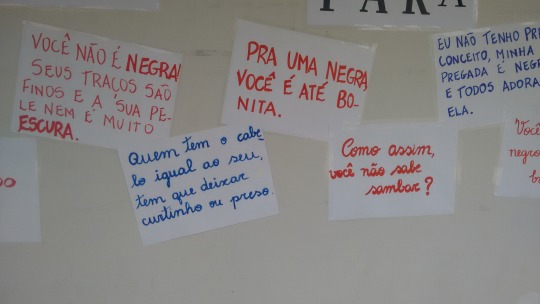 PARA
VOCÊ NÃO É NEGRA!
SEUS TRAÇOS SÃO
FINOS E A SUA PE-
LE NEM É MUITO
ESCURA.
PRA UMA NEGRA,
VOCÊ É ATÉ BO-
NITA.
EU NÃO TENHO PRE
CONCEITO, MINHA
PREGADA É NEGR
E TODOS ADORA
ELA.
Quem tem o cabe-
lo igual ao seu,
tem que deixar
curtinho ou preso.
Como assim,
você não sabe
sambar?
Você
negro